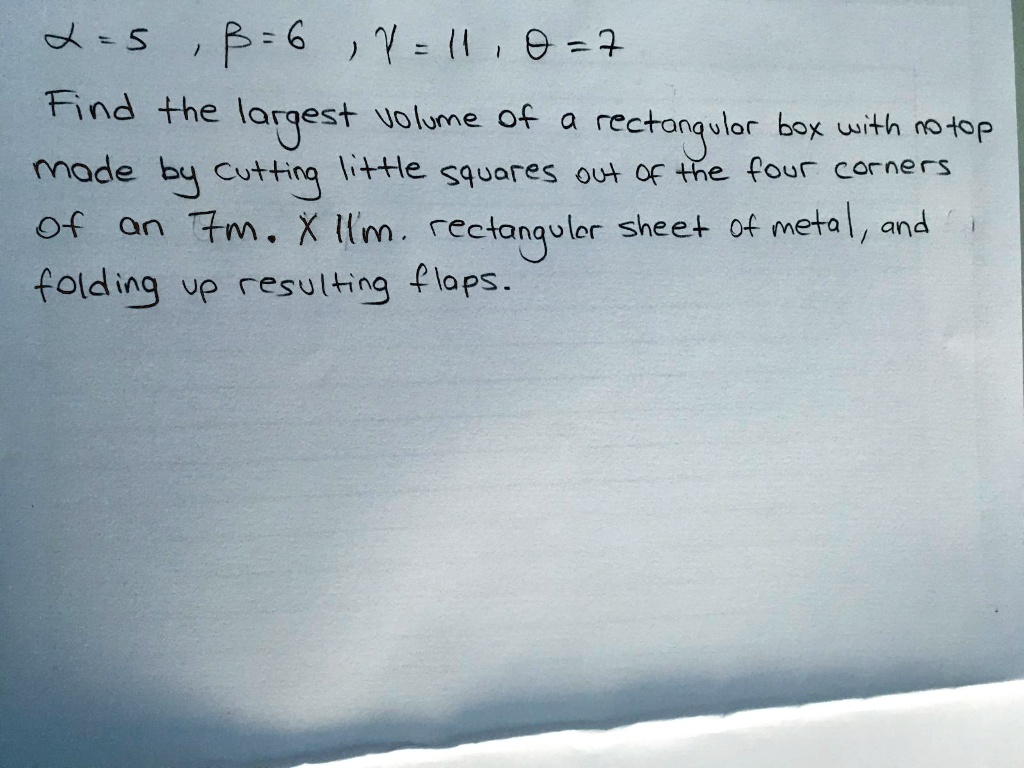 α = 5 , β = 6 , γ = 11 , θ = 7
Find the largest volume of a rectangular box with no top
made by cutting little squares out of the four corners
of an 7m. X 11m. rectangular sheet of metal, and
folding up resulting flaps.